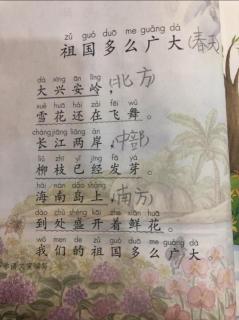 zǔ guó duō me guǎng dà
祖国多么广大(春天)
dà xīng ān lǐng
大兴安岭，(北方)
xuě huā hái zài fēi wǔ
雪花还在飞舞。
cháng jiāng liǎng àn
长江两岸，(中部)
liǔ zhī yǐ jīng fā yá
柳枝已经发芽。
hǎi nán dǎo shàng
海南岛上，(南方)
dào chù shèng kāi zhe xiān huā
到处盛开着鲜花。
wǒ men de zǔ guó duō me guǎng dà
我们的祖国多么广大。